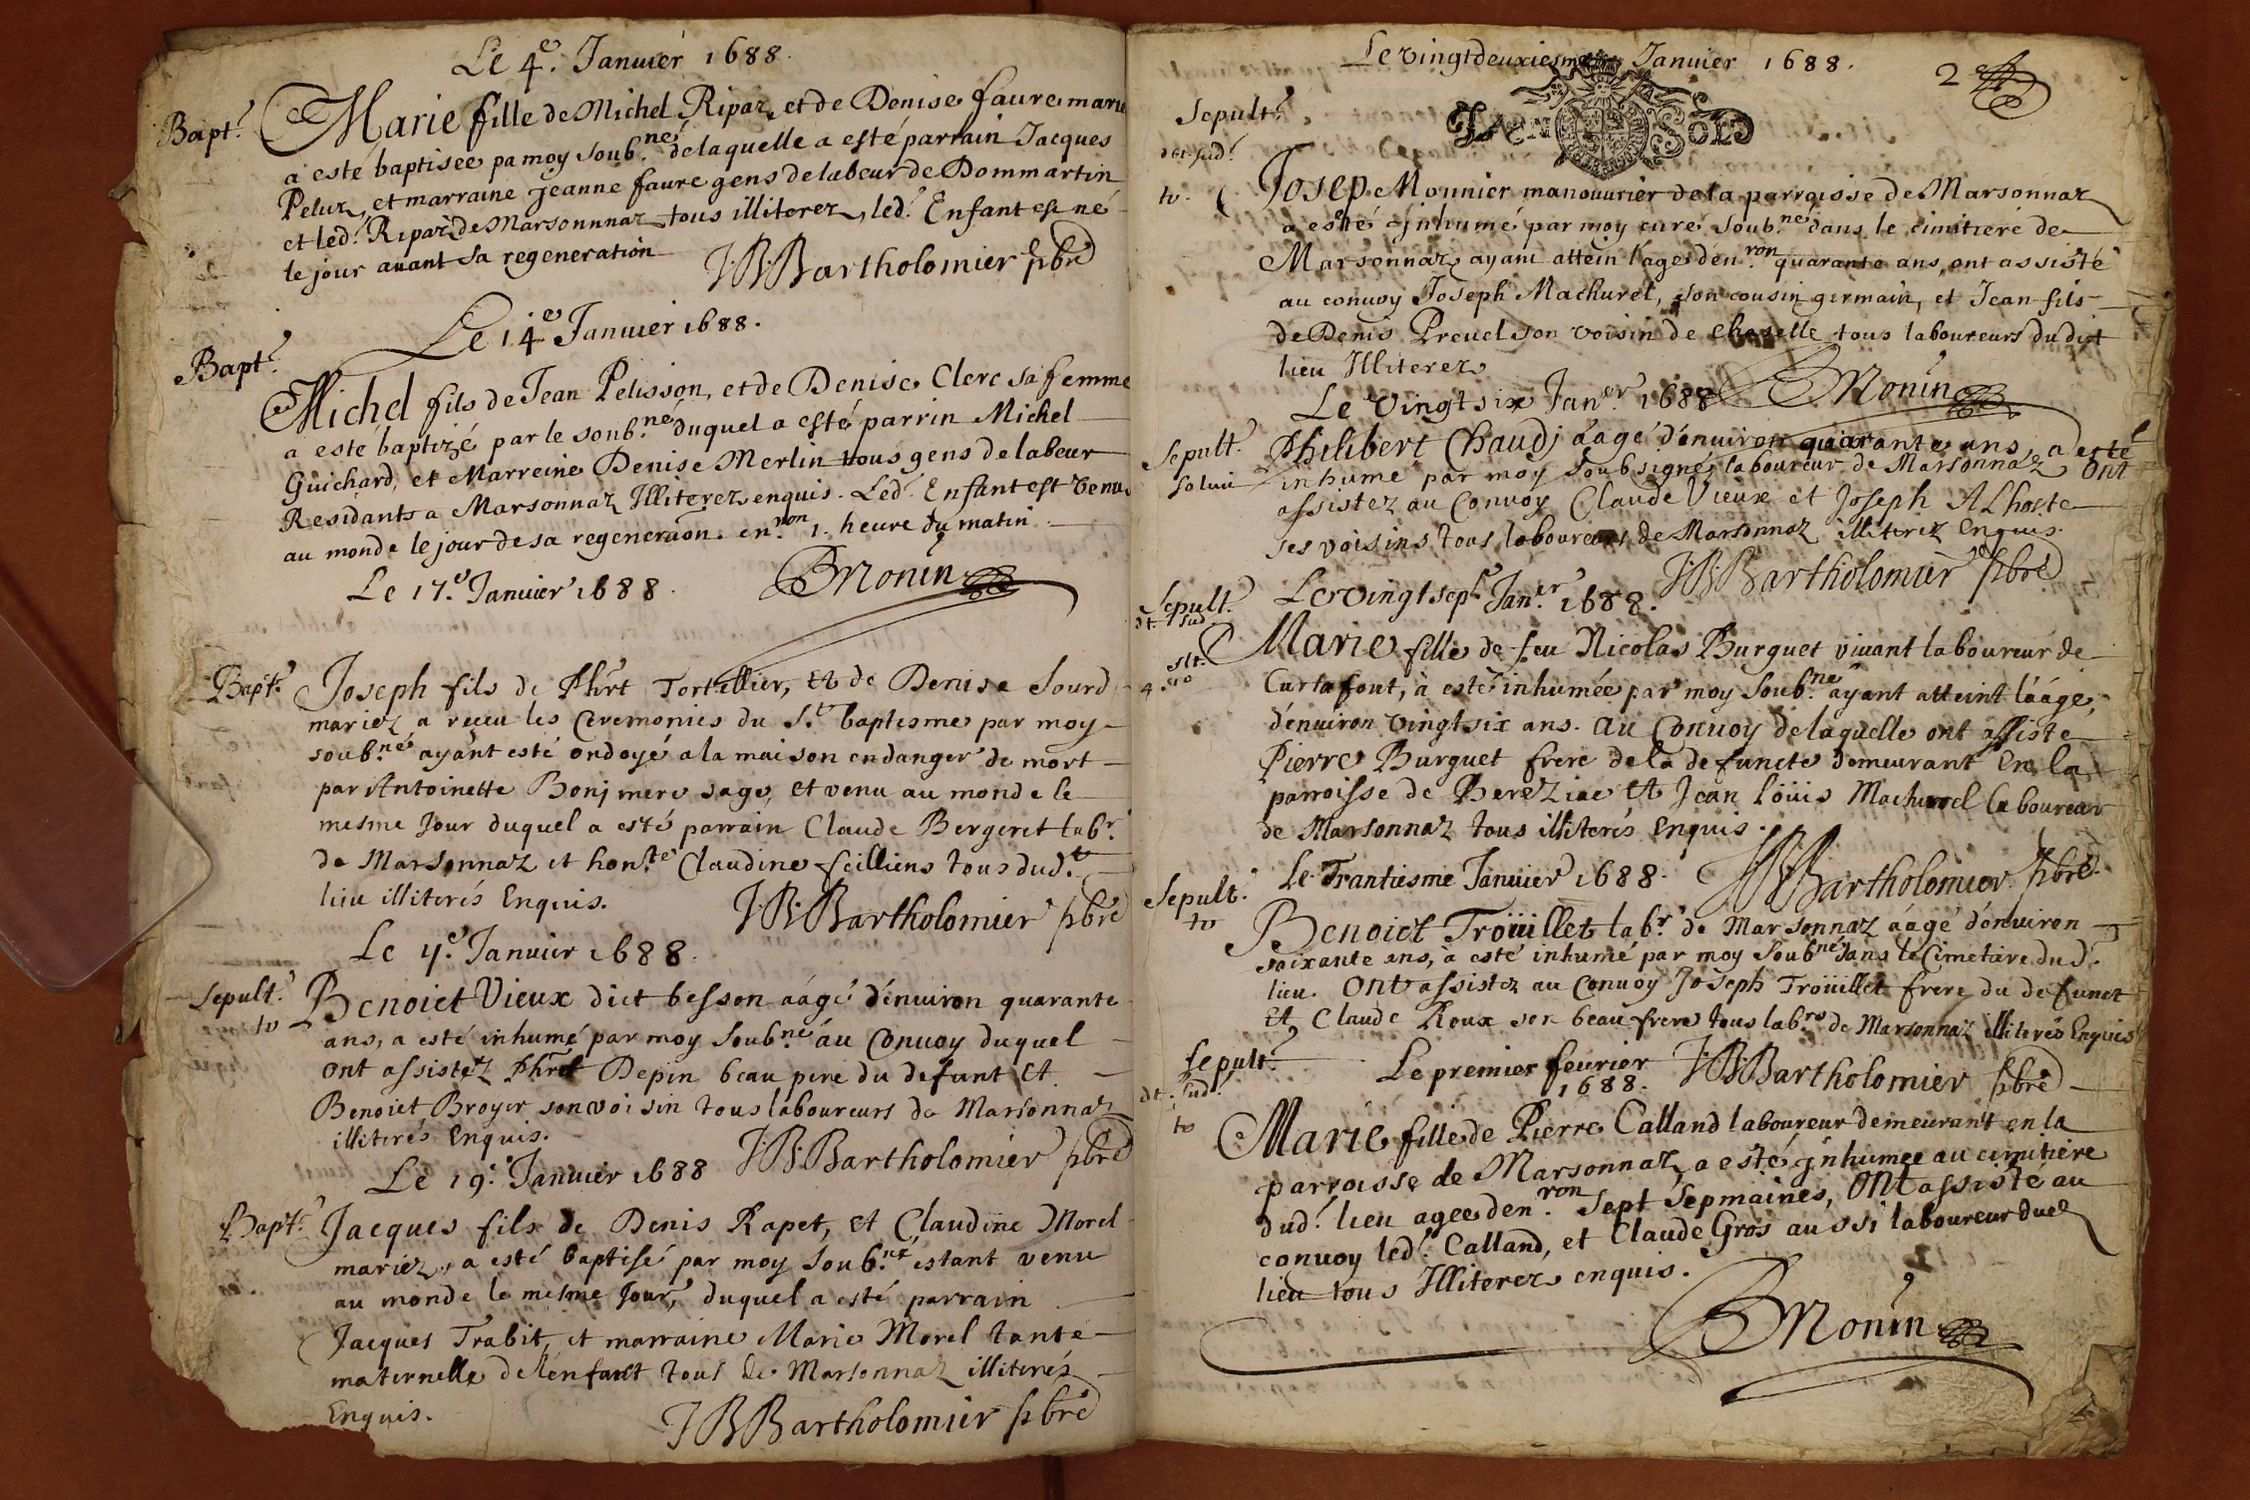 Le 4.e Januier 1688.
Bapt.e Marie fille de Michel Ripaz, et de Denise faure marie
a esté baptisée pa moy soub.né de laquelle a esté parrain Jacques
Peluz, et marraine jeanne faure gens de labeur de Dommartin
et led.t Ripaz de Marsonnnaz tous illiterez, led.t Enfant est né
le jour auant sa regeneration J:B:Bartholomier pbre
Le 14.e Januier 1688.
Bapt.e
Michel fils de Jean Pelisson, et de Denise Clerc sa femme
a esté baptizé par le soub.né duquel a esté parrin Michel
Guichard, et Marreine Denise Merlin tous gens de labeur
Residants a Marsonnaz Illiterez enquis. Led.t Enfant est venu
au monde le jour de sa regeneraon. en.ron 1. heure du matin
BMonin
Le 17.e Januier 1688.
Bapt.e Joseph fils de Phrt Tortillier, et de Denise Sourd
mariez a receu les Ceremonies du S.t baptesme par moy
soub.né ayant esté ondoyé a la maison en danger de mort
par Antoinette Bonj mere sage, et venu au monde le
mesme Jour duquel a esté parrain Claude Bergeret lab.r
de Marsonnaz et hon.te Claudine feilliens tous dud.t
lieu illiterés Enquis. J:B:Bartholomier pbre
Le Januier 1688.
Sepult.e Benoict Vieux dict besson aagé d'enuiron quarante
ans, a esté inhumé par moy soub.né au Conuoy duquel
ont assistez Phrt Depin beau pere du defunt et
Benoict Broyer son voisin tous laboureurs de Marsonnaz
illiterés Enquis. J:B:Bartholomier pbre
Le 19.e Januier 1688
Bapt.e Jacques fils de Denis Rapet, et Claudine Morel
mariez, a esté baptisé par moy soub.né estant venu
au monde le mesme Jour, duquel a esté parrain
Jacques Trabit, et marraine Marie Morel tante
maternelle de l'enfant tous de Marsonnaz illiterés
Enquis. J B Bartholomier pbre
Le vingtdeuxiesme Januier 1688. 2
Sepult.e
Josep Monnier manouurier de la parroisse de Marsonnaz
a esté jnhumé par moy curé soub.né dans le cimitiere de
Marsonnaz ayant attein l'age d'en.ron quarante ans, ont assisté
au conuoy Joseph Machurel, son cousin germain, et Jean fils
de Denis Preuel son voisin de tous laboureurs du dict
lieu Illiterez BMonin
Le Vingt six Jan.er 1688
Sepult.e Philibert Chaudj aagé d'enuiron quarante ans, a esté
inhumé par moy soubsigné, laboureur de Marsonnaz, ont
assistez au Conuoy Claude Vieux et Joseph ALhoste
ses voisins tous laboureurs de Marsonnaz illiterez Enquis.
J:B:Bartholomier pbre
Le vingt sept Jan.er 1688.
Sepult.e
Marie fille de feu Nicolas Burguet viuant laboureur de
Curtafont, a esté inhumée par moy soub.né ayant atteint l'aage
d'enuiron vingt six ans. au Conuoy de laquelle ont assisté
Pierre Burguet frere de la defuncte demeurant En la
parroisse de Bereziac et Jean Loüis Machurel laboureur
de Marsonnaz tous illiterés Enquis.
Le Trantiesme Januier 1688. J:B:Bartholomier pbre
Sepult.e
Benoict Troüillet lab.r de Marsonnaz aagé d'enuiron
soixante ans, a esté inhumé par moy soub.né dans le Cimetiere dud.t
lieu. Ont assistez au Conuoy Joseph Troüillet frere du defunct
et Claude Roux son beau frere tous lab.rs de Marsonnaz illiterés Enquis
Sepult.e Le premier feurier J:B:Bartholomier pbre
1688.
Marie fille de Pierre Calland laboureur demeurant en la
parroisse de Marsonnaz, a esté jnhumee au cimitiere
dud.t lieu agee d'en.ron sept sepmaines, Ont assisté au
conuoy led.t Calland, et Claude Gros aussi laboureur dud
lieu tous Illiterez enquis.
BMonin